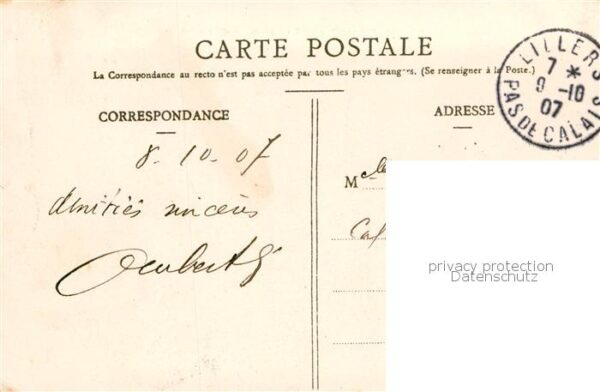 CARTE POSTALE
La Correspondance au recto n'est pas acceptée par tous les pays étrangers. (Se renseigner à la Poste.)
LILLERS
7 *
9 -10
07
PAS DE CALAIS
CORRESPONDANCE
8. 10. 07
Amitiés sincères
ADRESSE
M
privacy protection
Datenschutz